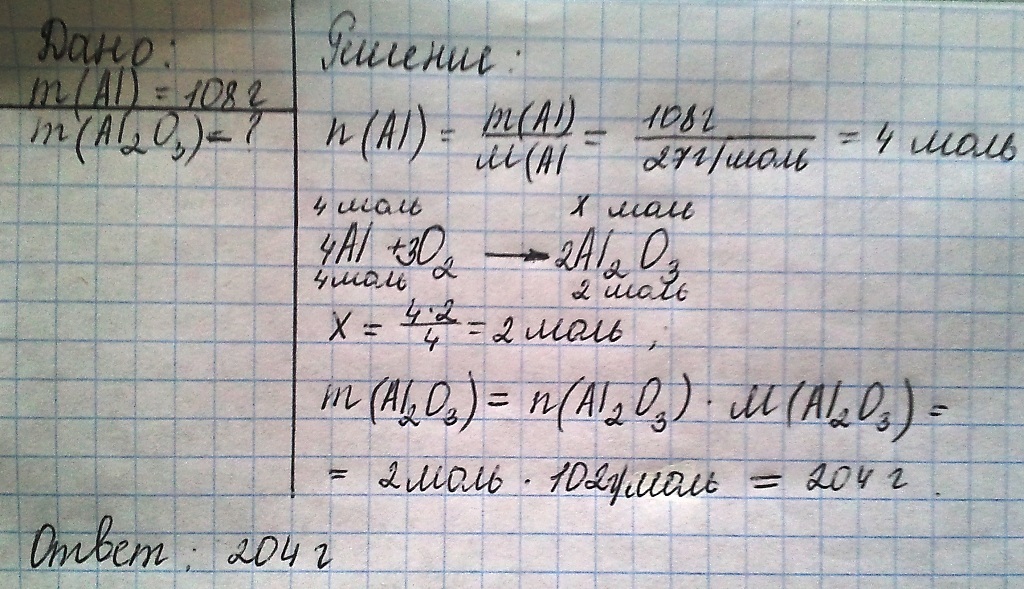 Дано:
m(Al) = 108 г
m(Al₂O₃) = ?
Решение:
n(Al) = m(Al)/M(Al = 108 г/27 г/моль = 4 моль
4 моль x моль
4Al + 3O₂ → 2Al₂O₃
4 моль 2 моль
X = 4·2/4 = 2 моль ;
m(Al₂O₃) = n(Al₂O₃) · M(Al₂O₃) =
= 2 моль · 102 г/моль = 204 г .
Ответ: 204 г